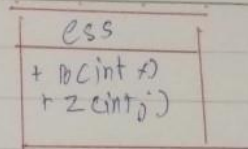 ess
+ B(int x)
+ Z(int j)